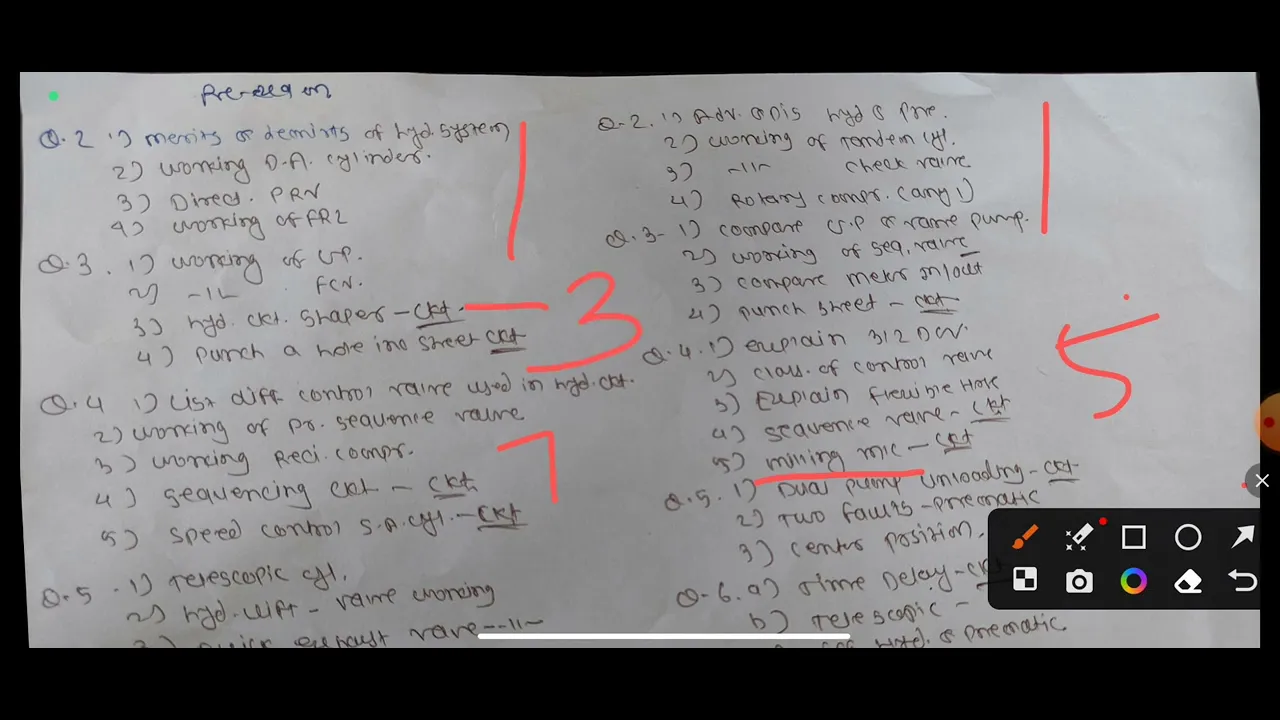 Q.2 1) merits & demirts of hyd. System
2) working D.A. cylinder.
3) Direct. PRV
4) working of FRL
Q.3. 1) working of U.P.
2) -11- FCV.
3) hyd. ckt. Shaper - ckt.
4) punch a hole ino sheet ckt
Q.4 1) List diff control valve used in hyd. ckt.
2) working of pr. sequence valve
3) working Reci. compr.
4) sequencing ckt - ckt
5) speed control S.A. cyl. - ckt
Q.5. 1) Telescopic cyl.
2) hyd. Lift - vane working
3) quick exhaust valve -11-
Q.2. 1) Adv. & Dis hyd & pne.
2) working of Tandem cyl.
3) -11- check valve
4) Rotary compr. (any 1)
Q.3- 1) compare G.P & vane pump.
2) working of seq. valve
3) compare meter in/out
4) punch sheet - ckt
Q.4. 1) Explain 3/2 DCV.
2) class. of control valve
3) Explain flexible Hose
4) sequence valve - ckt
5) milling m/c - ckt
Q.5. 1) Dual pump unloading - ckt
2) Two faults - pneumatic
3) center position.
Q.6. a) Time Delay - ckt
b) Telescopic -
hyd. & pneumatic
3
5
7